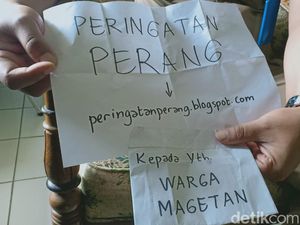 PERINGATAN
PERANG
↓
peringatanperang.blogspot.com
Kepada Yth.
WARGA
MAGETAN
detikcom